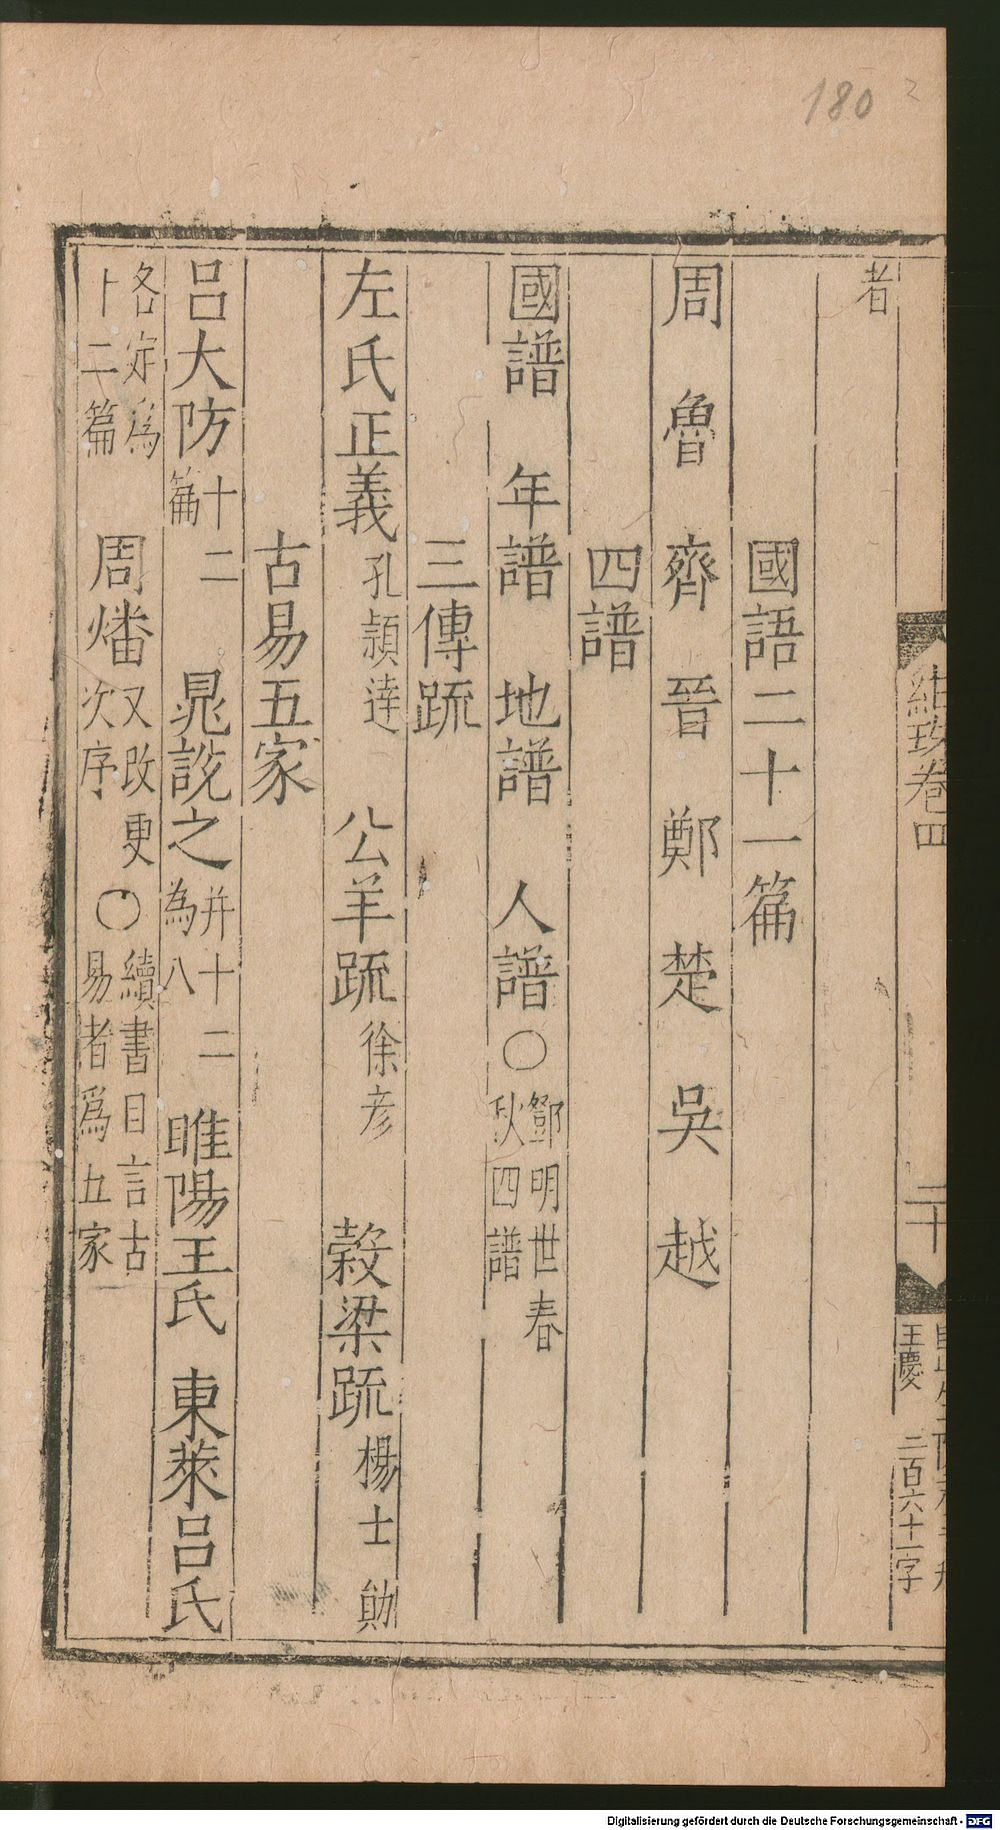 180
2
者
國語二十一篇
周 魯 齊 晉 鄭 楚 吳 越
四譜
國譜 年譜 地譜 人譜 〇 鄧明世春
秋四譜
三傳䟽
左氏正義 孔頴達 公羊䟽 徐彦 穀梁䟽 楊士勛
古易五家
呂大防 十二
篇 晁說之 并十二
為八 睢陽王氏 東萊呂氏
各定為
十二篇 周燔 又改更
次序 〇 續書目言古
易者爲五家
紺珠卷四
二十
王慶 二百六十一字
Digitalisierung gefördert durch die Deutsche Forschungsgemeinschaft - DFG